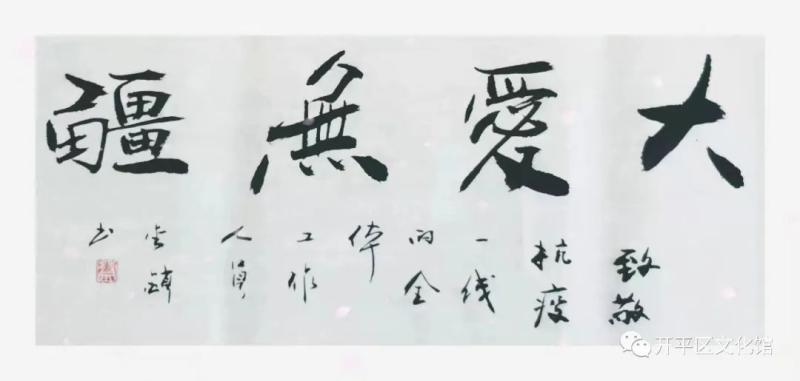 大愛無疆
致敬
抗疫
一线
的全
体
工作
人員
书
开平区文化馆